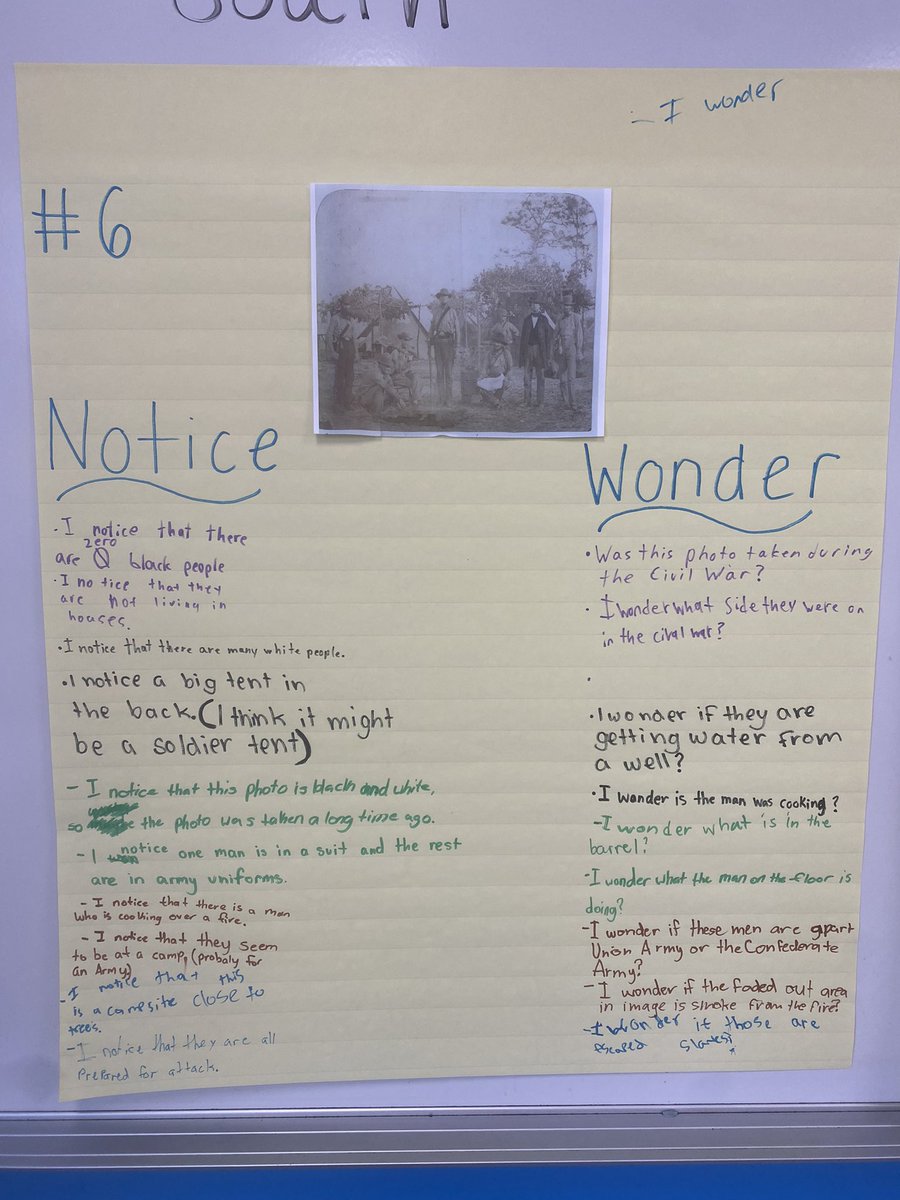 South
- I wonder
#6
Notice
· I notice that there
zero
are 0 black people
· I notice that they
are not living in
houses.
· I notice that there are many white people.
· I notice a big tent in
the back. (I think it might
be a soldier tent)
- I notice that this photo is black and white,
so the photo was taken a long time ago.
- I notice one man is in a suit and the rest
are in army uniforms.
- I notice that there is a man
who is cooking over a fire.
- I notice that they seem
to be at a camp, (probaly for
an Army)
- I notice that this
is a campsite close to
trees.
- I notice that they are all
prepared for attack.
Wonder
· Was this photo taken during
the Civil War?
· I wonder what side they were on
in the cival war?
·
· I wonder if they are
getting water from
a well?
· I wonder is the man was cooking?
- I wonder what is in the
barrel?
- I wonder what the man on the floor is
doing?
- I wonder if these men are apart
Union Army or the Confederate
Army?
- I wonder if the faded out area
in image is smoke from the fire?
- I wonder if those are